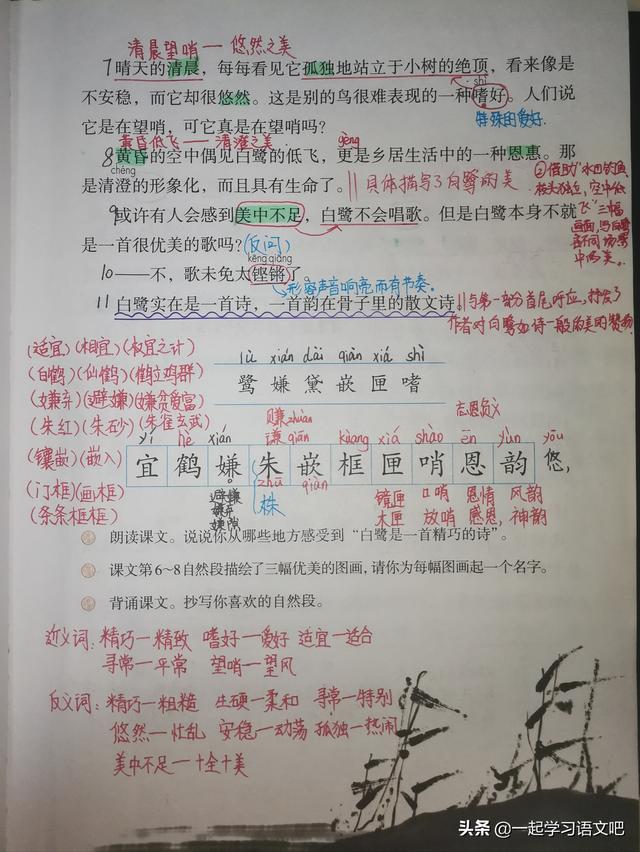 清晨望哨一悠然之美
7晴天的清晨，每每看见它孤独地站立于小树的绝顶，看来像是
shì
不安稳，而它却很悠然。这是别的鸟很难表现的一种嗜好。人们说
特殊的爱好.
它是在望哨吗？可它真是在望哨吗？
黄昏低飞一一清澄之美.
gèng
8黄昏的空中偶见白鹭的低飞，更是乡居生活中的一种恩惠。那
chéng
是清澄的形象化，而且具有生命了。
具体描写了白鹭的美
②借助"水田钓鱼
枝头独立，空中低
飞"三幅
画面,写白鹭
在不同场景
中的美。
9或许有人会感到美中不足，白鹭不会唱歌。但是白鹭本身不就
是一首很优美的歌吗？
(反问)
kēng qiāng
10——不，歌未免太铿锵了。
形容声音响亮而有节奏。
11白鹭实在是一首诗，一首韵在骨子里的散文诗
与第一部分首尾呼应，抒发了
作者对白鹭如诗一般的美的赞物
(适宜)(相宜)(权宜之计)
(白鹤)(仙鹤)(鹤立鸡群)
(嫌弃)(避嫌)(嫌贫爱富)
(朱红)(朱砂)(朱雀玄武)
(镶嵌)(嵌入)
(门框)(画框)
(条条框框)
lù xián dài qiàn xiá shì
鹭嫌黛嵌匣嗜
赚zhuàn
谦qiān
忘恩负义
yí hè xián kuàng xiá shào ēn yùn yōu
宜鹤嫌朱嵌框匣哨恩韵悠，
zhū qiàn
株
避嫌
嫌弃
嫌隙
镜匣 口哨 恩情 风韵
木匣 放哨 感恩, 神韵
朗读课文。说说你从哪些地方感受到“白鹭是一首精巧的诗”。
课文第6~8自然段描绘了三幅优美的图画，请你为每幅图画起一个名字。
背诵课文。抄写你喜欢的自然段。
近义词：精巧一精致 嗜好一爱好 适宜一适合
寻常一平常 望哨一望风
反义词：精巧一粗糙 生硬一柔和 寻常一特别
悠然一忙乱 安稳一动荡 孤独一热闹
美中不足一十全十美
头条 @一起学习语文吧